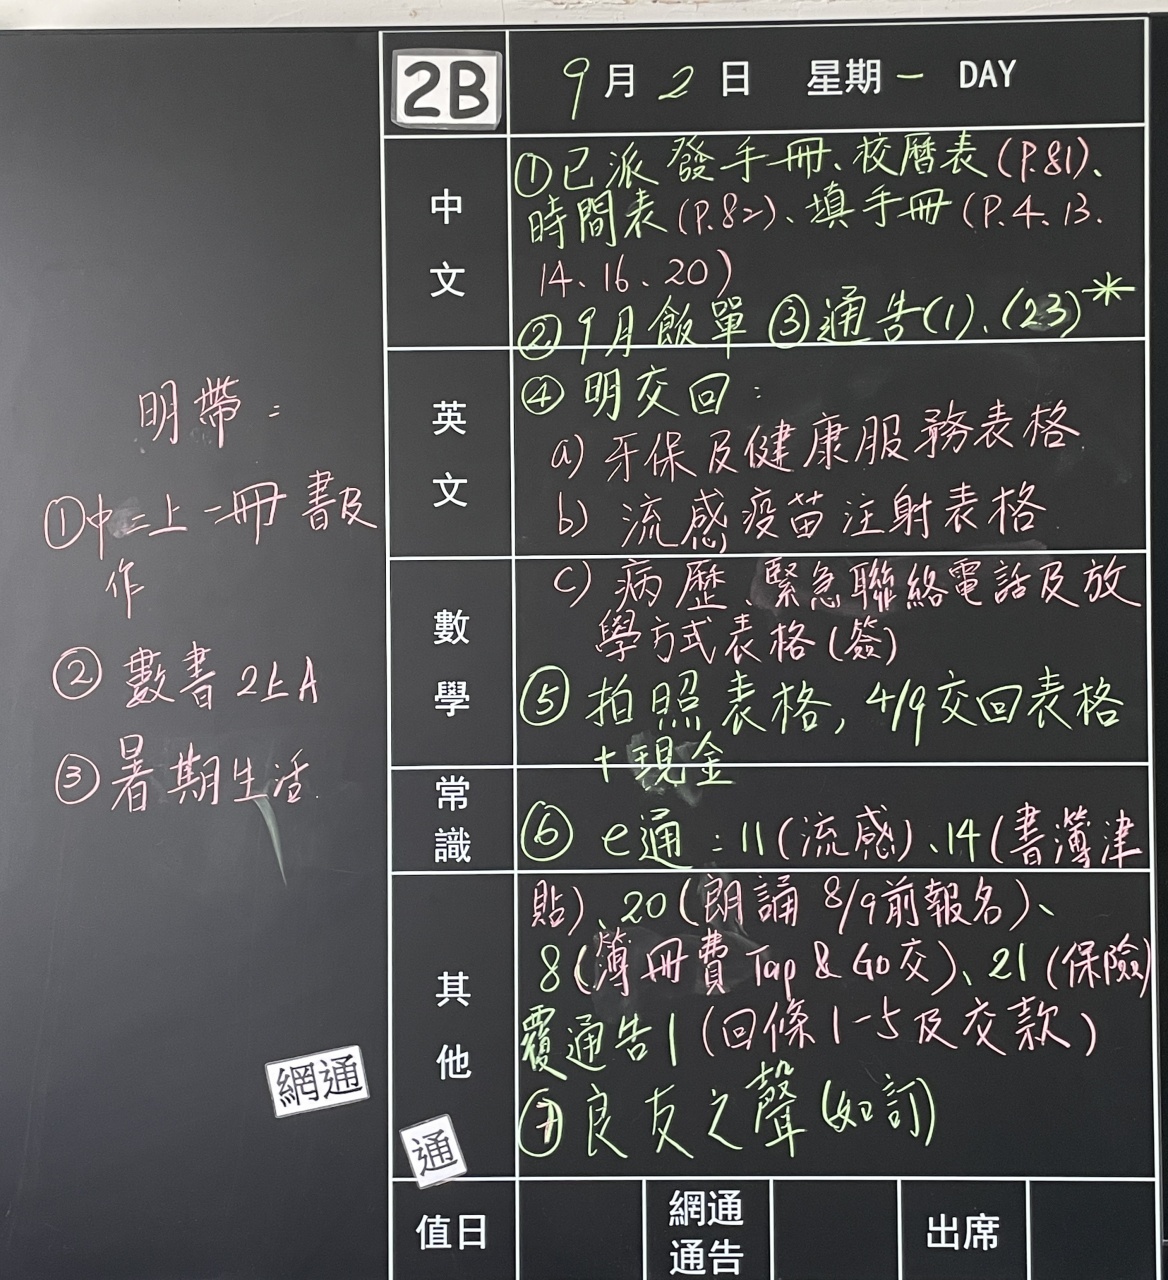 2B 9月2日 星期一 DAY
中文
①已派發手冊、校曆表(P.81)、
時間表(P.82)、填手冊(P.4、13、
14、16、20)
②9月飯單 ③通告(1)、(23)*
英文
④明交回：
a) 牙保及健康服務表格
b) 流感疫苗注射表格
數學
c) 病歷、緊急聯絡電話及放
學方式表格(簽)
⑤拍照表格, 4/9交回表格
+現金
常識
⑥ e通：11(流感)、14(書簿津
其他
貼)、20(朗誦 8/9前報名)、
8(簿冊費 Tap & Go交)、21(保險)
覆通告1(回條1-5及交款)
⑦良友之聲(如訂)
值日
網通
通告
出席
明帶：
①中二上一冊書及
作
②數書2上A
③暑期生活
網通
通